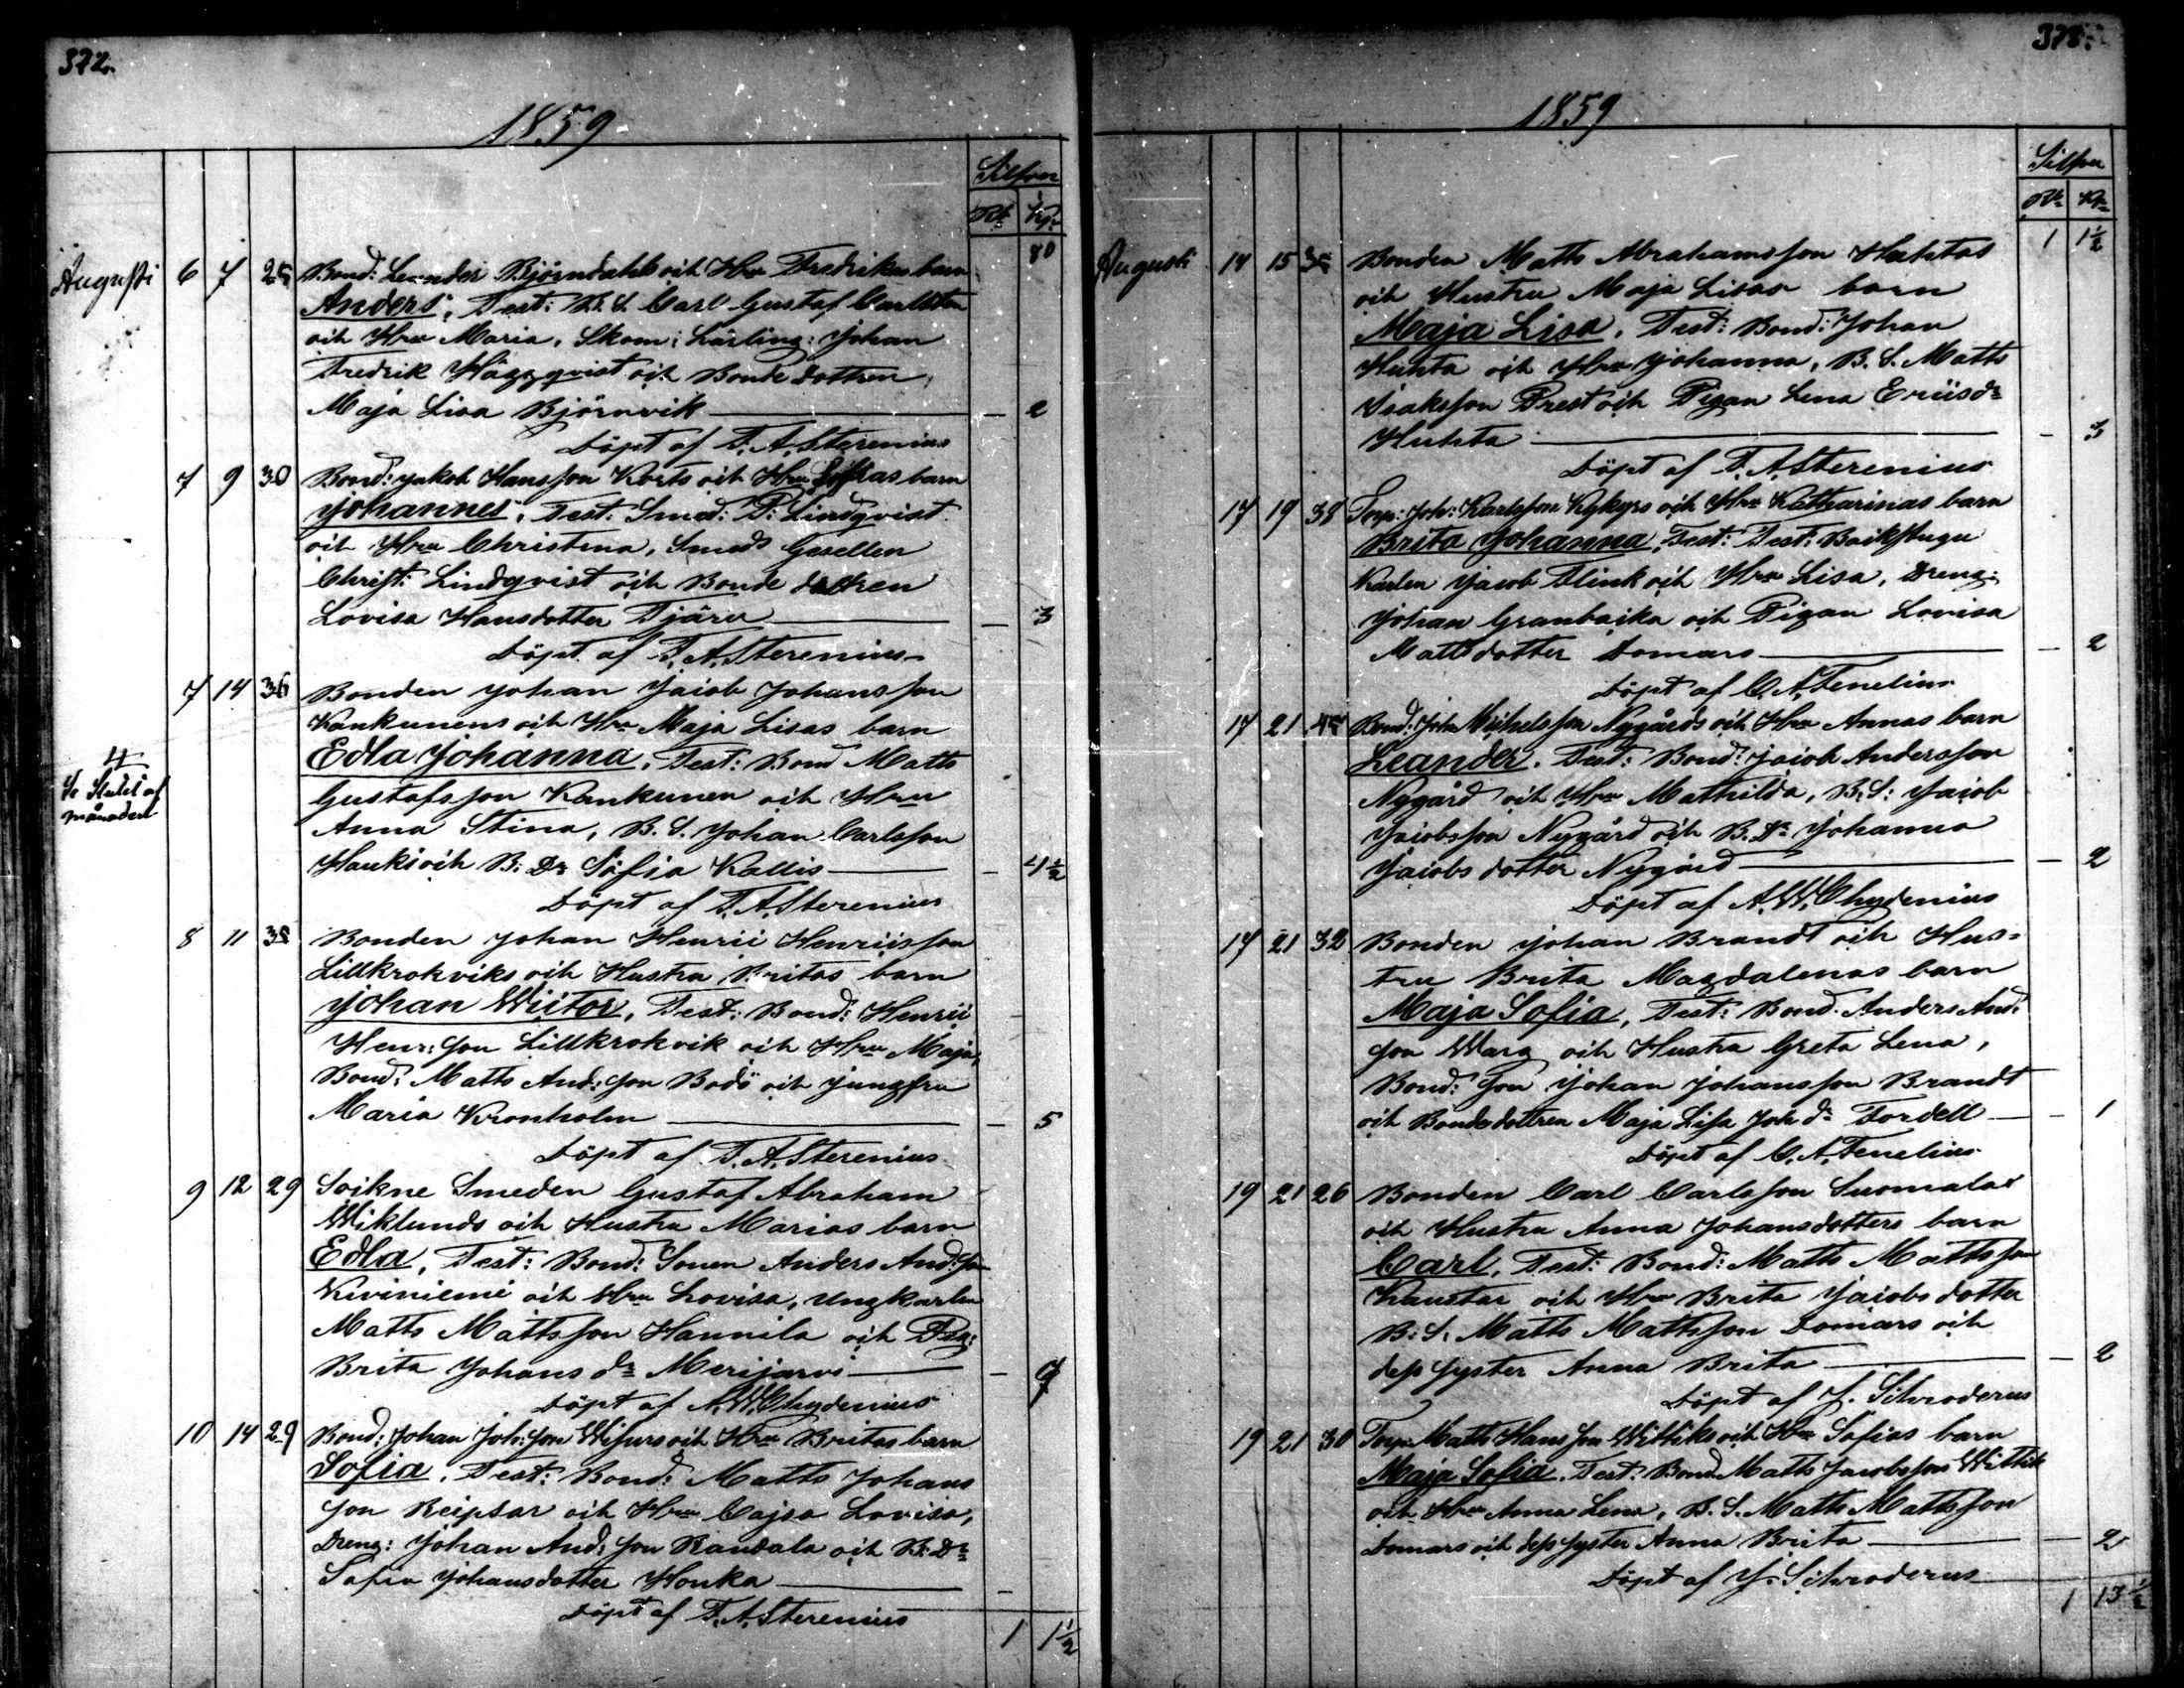 372.
1859
Silfver
Rb Kp
80
Augusti 6 7 25 Bond: Leander Björndahls och Hru Fredrikas barn
Anders, Test: B. S. Carl Gustaf Carlsten
och Hru Maria, Skom: Lärling: Johan
Fredrik Häggqvist och Bonde dottren
Maja Lisa Björnvik — 2
Döpt af F. A. Sterenius
7 9 30 Bond: Jakob Hansson Korts och Hru barn
Johannes, Test: Smed: P: Lindqvist
och Hru Christina, Smeds Gesellen
Christ: Lindqvist och Bonde dottren
Lovisa Hansdotter Tjäru — 3
Döpt af F. A. Sterenius
7 14 36 Bonden Johan Jacob Johansson
Kankunens och Hru Maja Lisas barn
Edla Johanna, Test: Bond Matts
Gustafsson Kankunen och Hru
Anna Stina, B. S. Johan Carlsson
Hauki och B: Dr Sofia Kallis — 4 1/2
Döpt af F. A. Sterenius
#
Se Slutet af
månaden
8 11 38 Bonden Johan Henric Henricsson
Lillkrokviks och Hustru Britas barn
Johan Wictor, Test: Bond: Henric
Henr: Son Lillkrokvik och Hru Maja,
Bond: Matts And: Son Bodö och jungfru
Maria Kronholm — 5
Döpt af F. A. Sterenius
9 12 29 Sockne Smeden Gustaf Abraham
Wiklunds och Hustru Marias barn
Edla, Test: Bond: Sonen Anders And: Son
Kiviniemi och Hru Lovisa, Ungkarlen
Matts Mattsson Hannila och Pig:
Brita Johans dr Merijarvi —
Döpt af A. W. Chydenius
10 14 29 Bond: Johan Joh: Son Wisurs och Hru Britas barn
Sofia, Test: Bond: Matts Johans
Son Reipsar och Hru Cajsa Lovisa,
Dreng: Johan And: Son Randala och B: Dr
Sofia Johansdotter Honka —
Döpt af F. A. Sterenius
1 1 1/2
373.
1859
Silfver
Rb Kp
1 1 1/2
Augusti 14 15 Bonden Matts Abrahamsson Huhtas
och Hustru Maja Lisas barn
Maja Lisa, Test: Bond: Johan
Huhta och Hru Johanna, B. S. Matts
Isaksson Prest och Pigan Lena Ericsdr
Huhta — 3
Döpt af F. A. Sterenius
17 19 38 Torp: Joh: Karlsson Kykyrs och Hru Katharinas barn
Brita Johanna, Test: Test: Backstugu
Karlen Jacob Flink och Hru Lisa, Dreng:
Johan Granbacka och Pigan Lovisa
Mattsdotter Domars — 2
Döpt af C. A. Fenelius
17 21 Bond: Joh Michelsson Nygårds och Hru Annas barn
Leander. Test: Bond: Jacob Andersson
Nygård och Hru Mathilda, B: S: Jacob
Jacobsson Nygård och B. Dr Johanna
Jacobs dotter Nygård — 2
Döpt af A. W. Chydenius
17 21 32 Bonden Johan Brandt och Hus-
tru Brita Magdalenas barn
Maja Sofia, Test: Bond. Anders And:
Son Warg och Hustru Greta Lena,
Bond: Son Johan Johansson Brandt
och Bondedottren Maja Lisa Joh dr Fordell — 1
Döpt af C. A. Fenelius
19 21 26 Bonden Carl Carlsson Suomalas
och Hustru Anna Johansdotters barn
Carl, Test: Bond: Matts Mattsson
Kaustar och Hru Brita Jacobs dotter
B: S: Matts Mattsson Domars och
dess Syster Anna Brita — 2
Döpt af J. Schroderus
19 21 30 Torp: Matts Hansson Wittiks och Hru Sofias barn
Maja Sofia. Test: Bond Matts Jacobsson Wittik
och Hru Anna Lena, B. S. Matts Mattsson
Domars och dess Syster Anna Brita — 2
Döpt af J. Schroderus
1 13 1/2